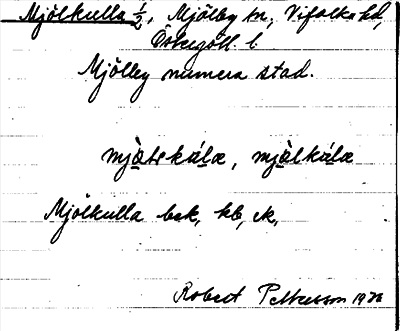 Mjölkulla ½, Mjölby kn, Vifolka hd,
Östergötl. l
Mjölby numera stad.
mjàlskúlα, mjàlkúlα
Mjölkulla bek, kb, ek,
Robert Pettersson